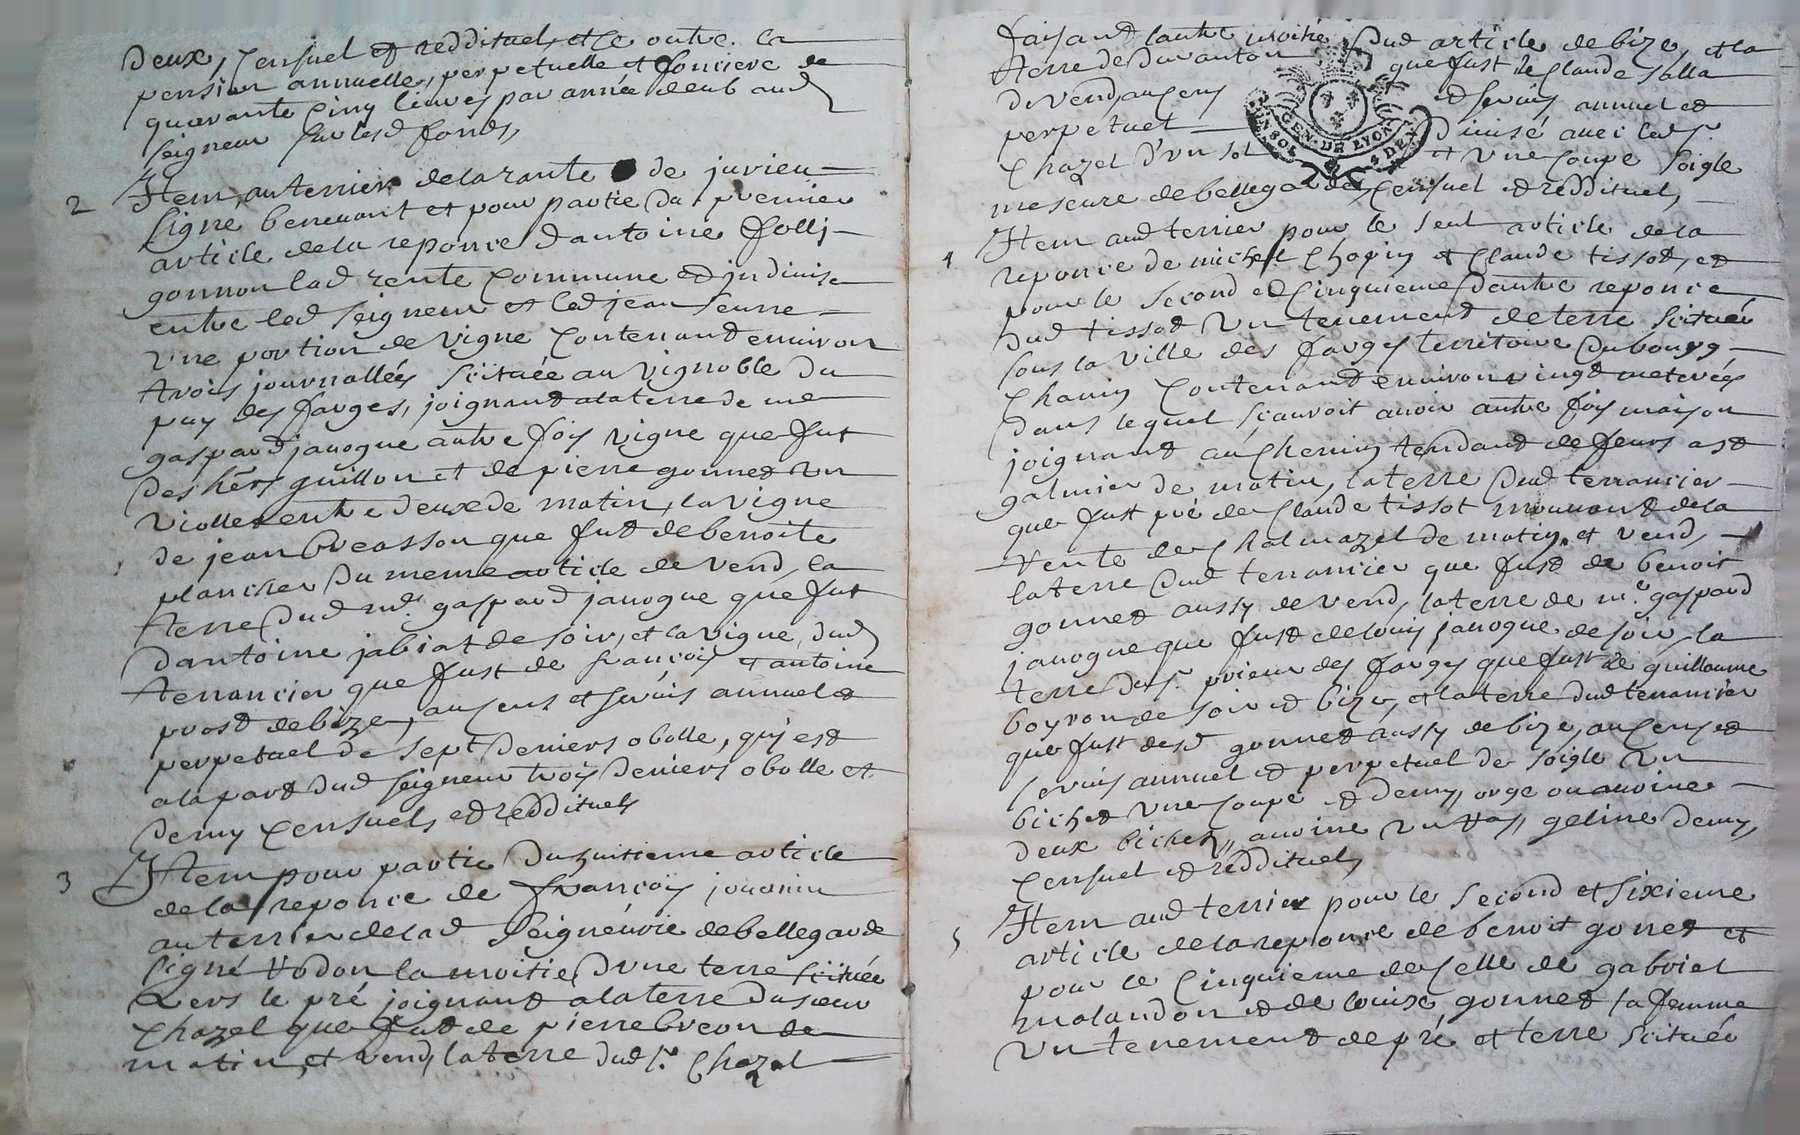 deux, censuel et reddituel, et ce outre la
pension annuelle, perpetuelle et fonciere de
quarante cinq livres par année deub aud
seigneur sur lesd fonds,
2 Item, au terrier de la rante de jurieu
signé benevant et pour partie du premier
article de la reponce d'antoine folli
gonnon lad rente commune et jndivise
entre led seigneur et led jean seurre
une portion de vigne contenant environ
trois journallées scituée au vignoble du
puy des farges, joignant a la terre de me
gaspard janogue autre fois vigne que fut
des hers guillon et de pierre gonnet un
viollet entre deux de matin, la vigne
de jean breasson que fut de benoite
plancher du meme article de vend, la
terre dud mr gaspard janogue que fut
d'antoine jabiat de soir, et la vigne dud
tenancier que fust de françois et antoine
prost de bize, au cens et servis annuel et
perpetuel de sept deniers obolle, qui est
a la part dud seigneur trois deniers obolle et
demy censuels et reddituels
3 Item pour partie du huitieme article
de la reponce de françois jouanin
au terrier de lad seigneurie de bellegarde
signé Vodon la moitié d'une terre scituée
Vers le pré joignant a la terre du sieur
chazel que fut de pierre breon de
matin, et vend, la terre dud sr chazel
faisant l'autre moitié dud article de bize, et la
terre de duvanton que fust de claude salla
de vend, au cens et servis annuel et
perpetuel divisé avec led sr
chazel d'un sol et une coupe soigle
meseure de bellegarde, censuel et reddituel,
GEN. DE LYON
4 DEN
4 Item aud terrier pour le seul article de la
reponce de michel chopin et claude tissot, et
pour le second et cinquieme d'autre reponce
dud tissot un tenement de terre scitué
sous la ville des farges territoire du bourg
chanin contenant environ vingt meterées
dans lequel scauroit avoir autre fois maison
joignant au chemin tendant de feurs a st
galmier de matin, la terre dud tenancier
que fust pré de claude tissot mouvant de la
rente de chalmazel de matin et vend,
la terre dud tenancier que fust de benoit
gonnet aussy de vend, la terre de me gaspard
janogue que fust de louis janogue de soir, la
terre du sr prieur des farges que fust de guillaume
boyron de soir et bize, et la terre dud tenancier
que fust desd gonnet aussy de bize, au cens et
servis annuel et perpetuel de soigle un
bichet une coupe et demy, orge ou avoine
deux bichets, avoine un ras, geline demy,
censuel et reddituel,
5 Item aud terrier pour le second et sixieme
article de la reponce de benoit gonet et
pour le cinquieme de celle de gabriel
malandon et de louise gonnet sa femme
un tenement de pré et terre scitué